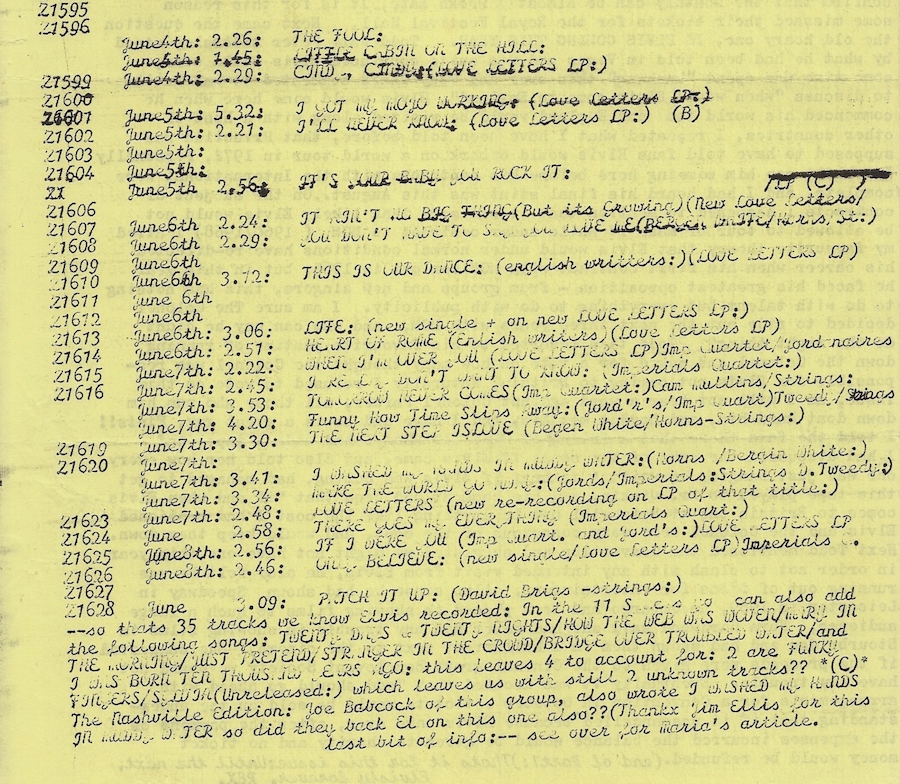 Z1595
Z1596
June4th: 2.26: THE FOOL:
June4th: 1.45: LITTLE CABIN ON THE HILL:
Z1599 June4th: 2.29: CINDY, CINDY:(LOVE LETTERS LP:)
Z1600
Z1601 June5th: 5.32: I GOT MY MOJO WORKING: (Love Letters LP:)
Z1602 June5th: 2.21: I'LL NEVER KNOW: (Love Letters LP:) (B)
Z1603 June5th:
Z1604 June5th:
Z1 June5th 2.56: IT'S YOUR BABY YOU ROCK IT: LP (C)
Z1606
Z1607 June6th 2.24: IT AIN'T NO BIG THING(But its Growing)(New Love Letters/
Z1608 June6th 2.29: YOU DON'T HAVE TO SAY YOU LOVE ME(BERGEN WHITE/Horns, St:)
Z1609 June6th
Z1610 June6th 3.12: THIS IS OUR DANCE: (english writters:)(LOVE LETTERS LP)
Z1611 June 6th
Z1612 June6th
Z1613 June6th: 3.06: LIFE: (new single + on new LOVE LETTERS LP:)
Z1614 June6th: 2.51: HEART OF ROME (Enlish writers)(Love Letters LP)
Z1615 June7th: 2.22: WHEN I'M OVER YOU (LOVE LETTERS LP)Imp Quartet/Jord naires
Z1616 June7th: 2.45: I REALLY DON'T WANT TO KNOW: (Imperials Quartet:)
June7th: 3.53: TOMORROW NEVER COMES(Imp Quartet:)Cam mullins/Strings:
June7th: 4.20: Funny How Time Slips Away:(Jord'r's/Imp Quart)Tweedy/Strings
Z1619 June7th: 3.30: THE NEXT STEP ISLOVE (Begen White/Horns-Strings:)
Z1620 June7th:
June7th: 3.41: I WASHED MY HANDS IN MUDDY WATER:(Horns /Bergin White:)
June7th: 3.34: MAKE THE WORLD GO AWAY:(Jords/Imperials:Strings D.Tweedy:)
Z1623 June7th: 2.48: LOVE LETTERS (new re-recording on LP of that title:)
Z1624 June 2.58: THERE GOES MY EVERYTHING (Imperials Quart:)
Z1625 June8th: 2.56: IF I WERE YOU (Imp Quart. and Jord's:)LOVE LETTERS LP
Z1626 June8th: 2.46: ONLY BELIEVE: (new single/Love Letters LP)Imperials .
Z1627
Z1628 June 3.09: PATCH IT UP: (David Brigs -strings:)
--so thats 35 tracks we know Elvis recorded: In the 11 can also add
the following songs: TWENTY DAYS & TWENTY NIGHTS/HOW THE WEB WAS WOVEN/MARY IN
THE MORNING/JUST PRETEND/STRANGER IN THE CROWD/BRIDGE OVER TROUBLED WATER/and
I WAS BORN TEN THOUSAND YEARS AGO: this leaves 4 to account for: 2 are FUNKY
FINGERS/SYLVIA(Unreleased:) which leaves us with still 2 unknown tracks?? *(C)*
The Nashville Edition: Joe Babcock of this group, also wrote I WASHED MY HANDS
IN MUDDY WATER so did they back El on this one also??(Thankx Jim Ellis for this
last bit of info:-- see over for Maria's article.